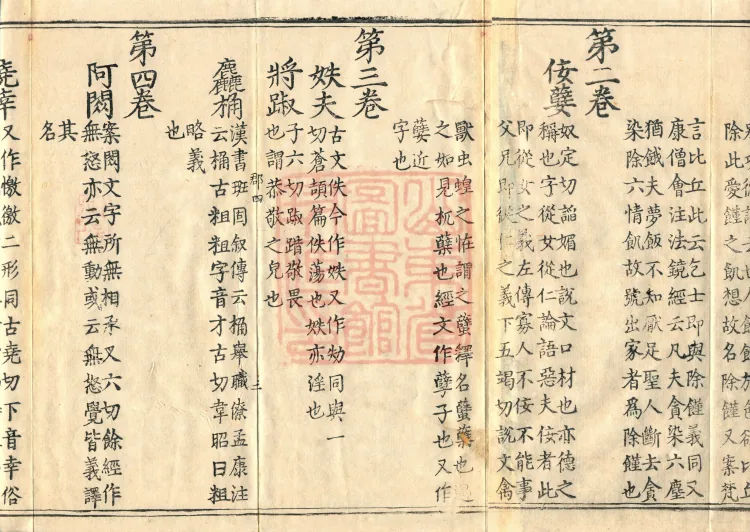 除此愛饉之飢想故名除饉又案梵
言比丘此云乞士即與除饉義同又
康僧會注法鏡經云凡夫貪染六塵
猶餓夫夢飯不知厭足聖人斷去貪
染除六情飢故號出家者爲除饉也
第二卷
佞孽
奴定切諂媚也說文口材也亦德之
稱也字從女從仁論語惡夫佞者此
即從女之義左傳寡人不佞不能事
父兄即從仁之義下五竭切說文禽
獸虫蝗之恠謂之蠥釋名蠥蘖也遇
之如見蘖也經文作孽子也又作
孽近
字也
第三卷
妷夫
古文佚今作妷又作劮同與一
切蒼頡篇佚蕩也妷亦淫也
將踧
子六切踧踖敬畏
也謂恭敬之皃也
麤桶
漢書班固叙傳云桶舉職僚孟康注
云桶古粗粗字音才古切韋昭曰粗
略義
也
三
第四卷
阿閦
案閦文字所無相承又六切餘經作
無怒亦云無動或云無怒覺皆義譯
其
名
又作憿二形同古堯切下音幸俗